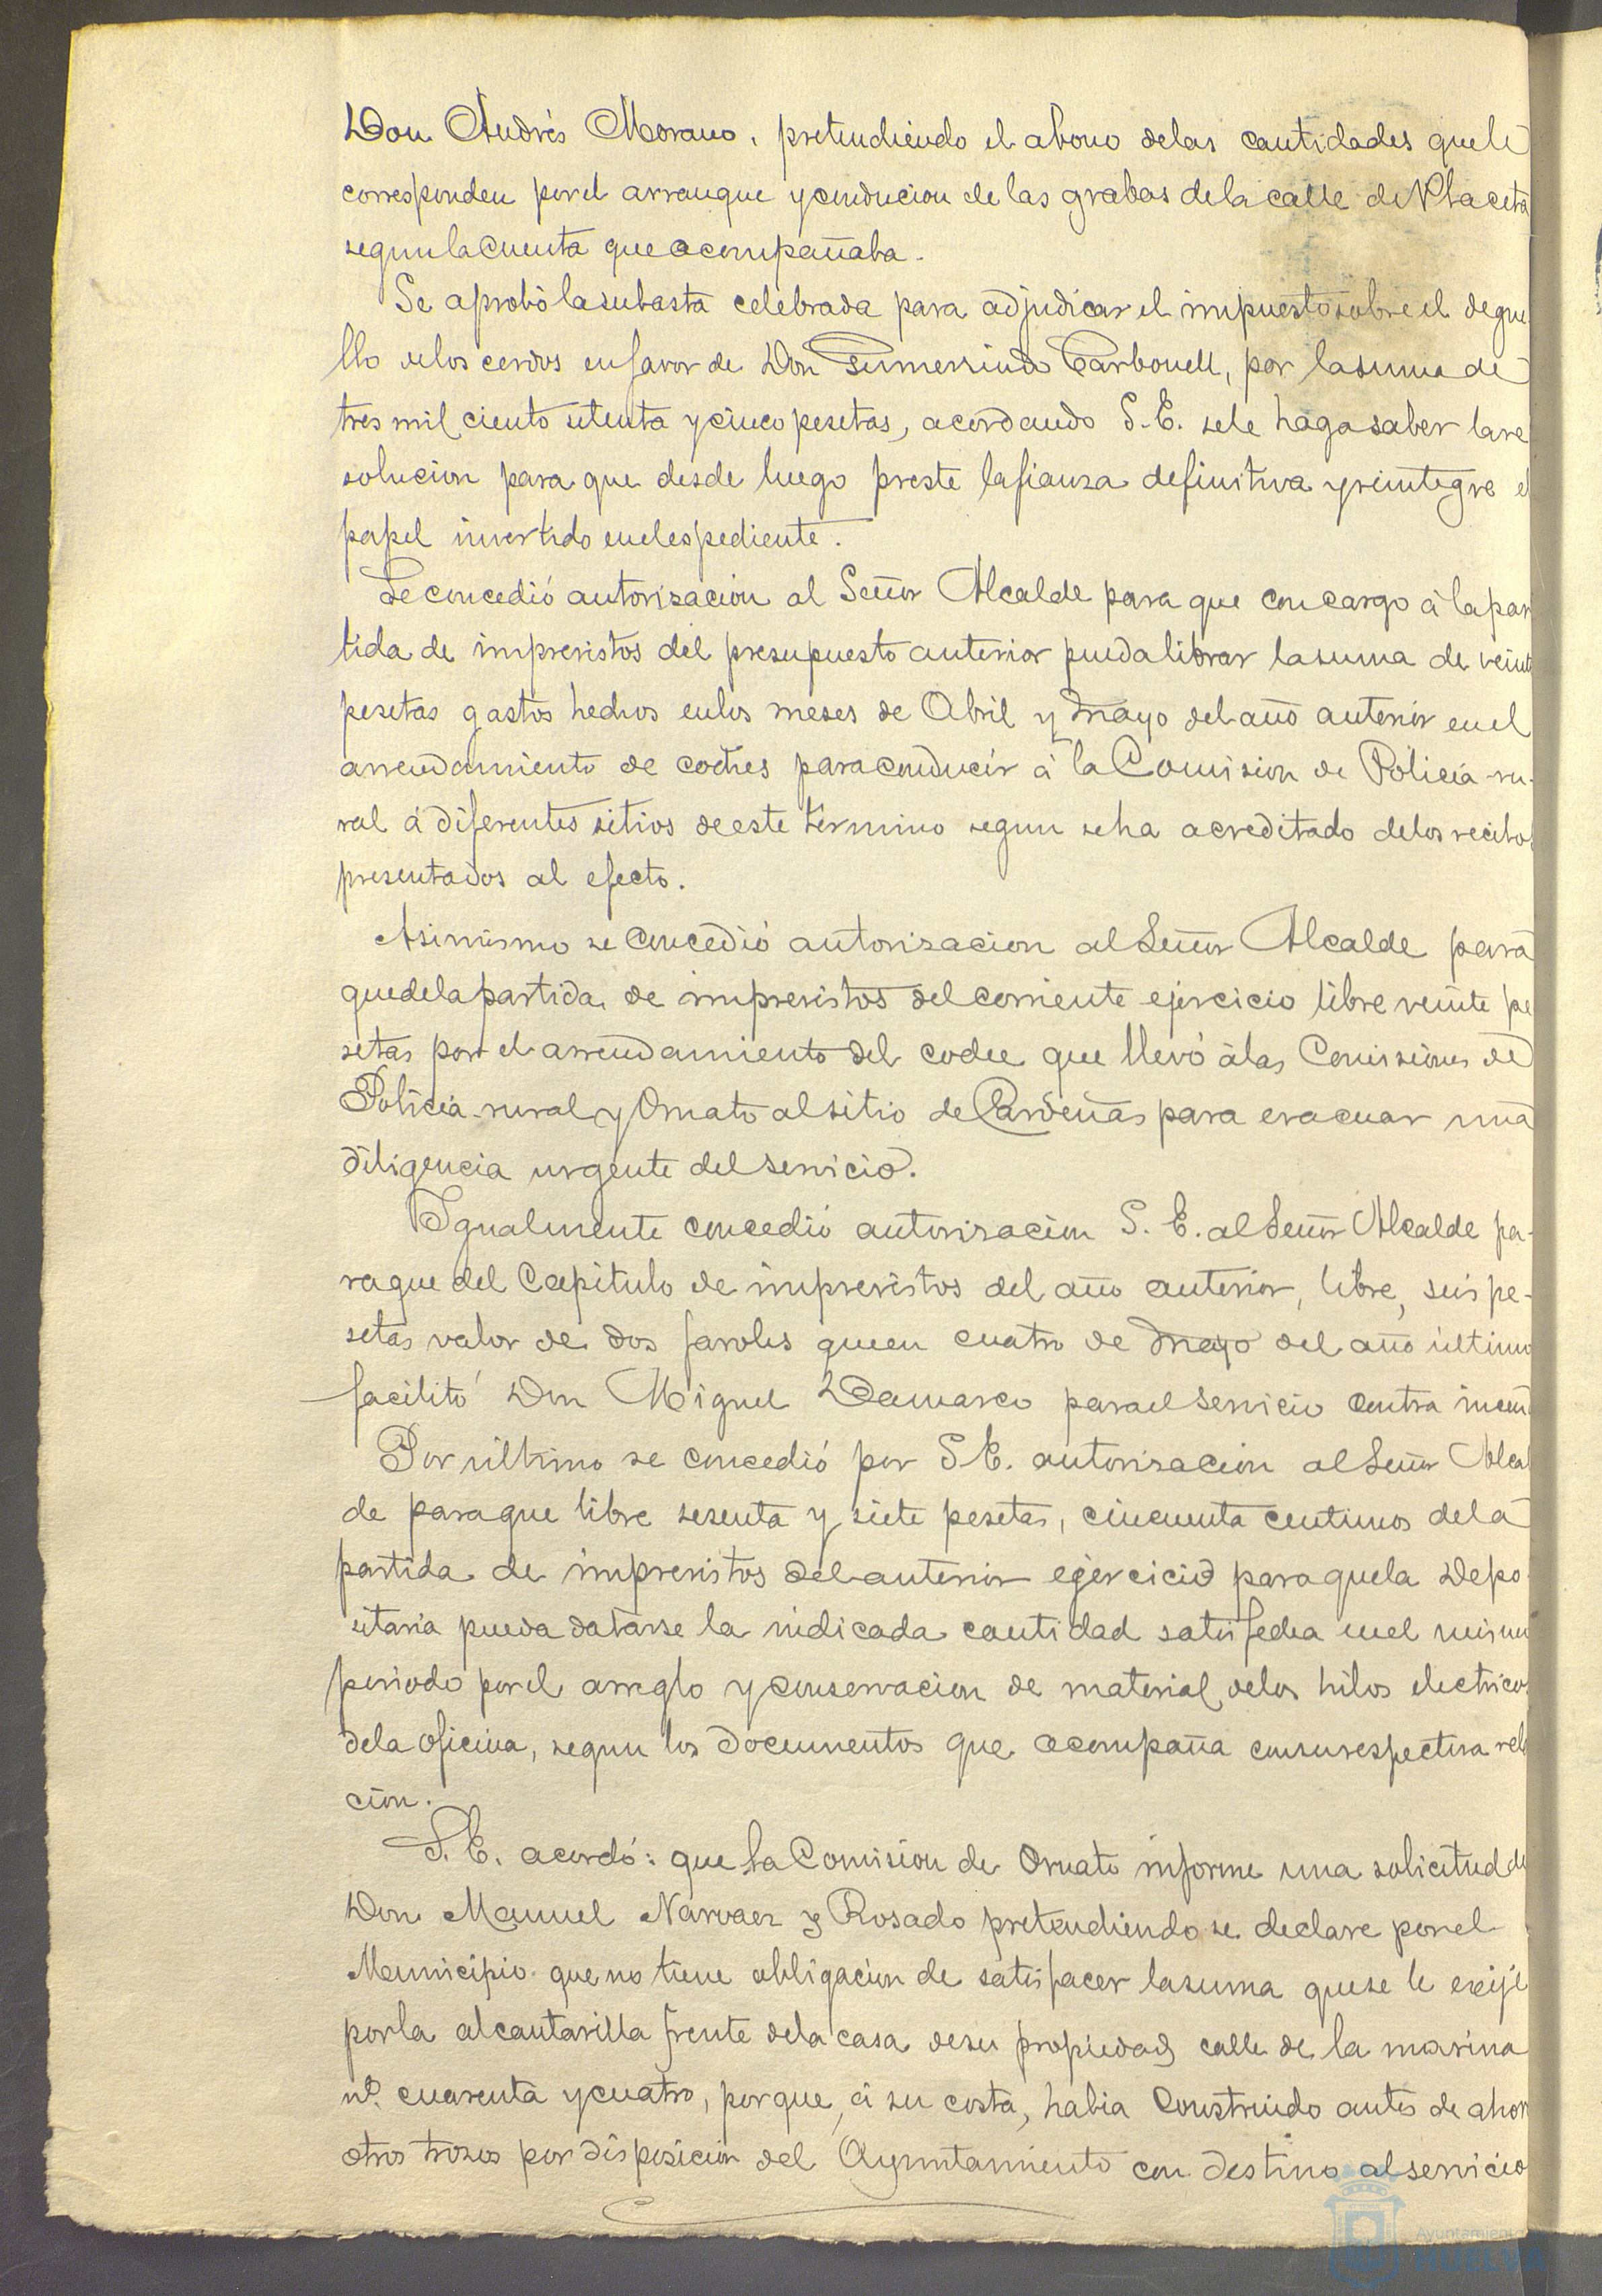 Don Andrés Morano, pretendiendo el abono delas cantidades quele
corresponden porel arranque yconducion de las grabas dela calle de Placeta
segunlacuenta queacompañaba.
Se aprobó lasubasta celebrada para adjudicar el impuestosobre el degue
llo delos cerdos enfavor de Don Gumersindo Carbonell, por lasuma de
tres mil ciento setenta ycinco pesetas, acordando S.E. sele haga saber lare
solucion para que desde luego preste lafianza definitiva yreintegre el
papel invertido enelespediente.
Se concedió autorizacion al Señor Alcalde para que concargo á lapar
tida de imprevistos del presupuesto anterior puedalibrar lasuma de veint
pesetas gastos hechos enlos meses de Abril y Mayo del año anterior enel
arrendamiento de coches paraconducir á la Comision de Policía ru-
ral á diferentes sitios deeste término segun seha acreditado delos recibo
presentados al efecto.
Asimismo se concedió autorizacion al Señor Alcalde para
quedelapartida de imprevistos delcorriente ejercicio libre veinte pe
setas por el arrendamiento del coche que llevó álas Comisiones de
Policía rural y Ornato alsitio de Cardeñas para evacuar una
diligencia urgente del servicio.
Igualmente concedió autorizacion S. E. al Señor Alcalde pa-
raque del Capitulo de imprevistos del año anterior, libre, seis pe-
setas valor de dos faroles queen cuatro de Mayo del año último
facilitó Don Miguel Damarco parael servicio contra incen
Por último se concedió por S E. autorizacion al Señor Alcal
de paraque libre sesenta y siete pesetas, cincuenta centimos dela
partida de imprevistos delanterior ejercicio paraquela Depo
sitaria pueda datarse la indicada cantidad satisfecha enel mismo
periodo porel arreglo yconservacion de material delos hilos electricos
dela oficina, segun los documentos que acompaña consurespectiva rela
cion.
S. E. acordó: que la Comision de Ornato informe una solicitud de
Don Manuel Narvaez y Rosado pretendiendo se declare porel
Municipio que no tiene obligacion de satisfacer lasuma quese le exije
porla alcantarilla frente dela casa desu propiedad calle de la marina
nº. cuarenta ycuatro, porque, á su costa, habia construido antes de ahora
otros trozos por disposicion del Ayuntamiento con destino alservicio
Ayuntamiento
HUELVA